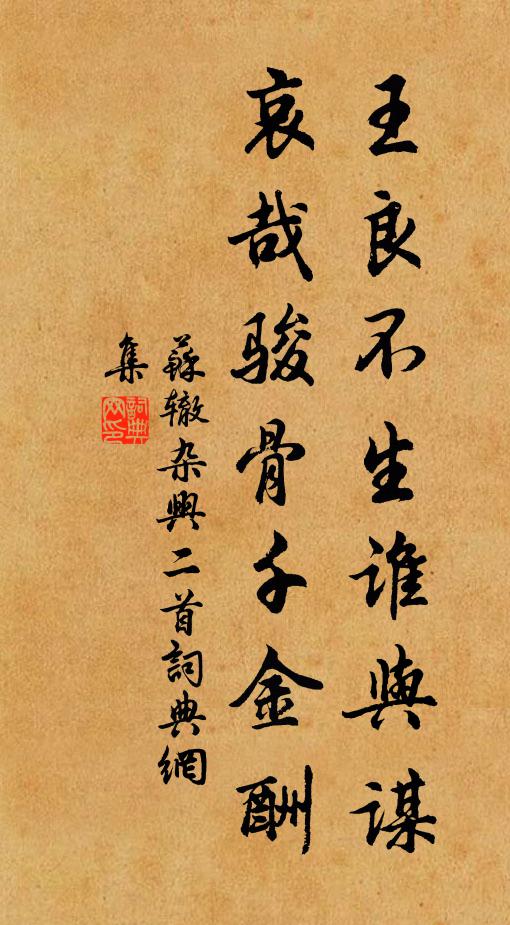 王良不生谁與谋
哀哉骏骨千金酬
蘇辙杂興二首詞典網
集
詞典
网印